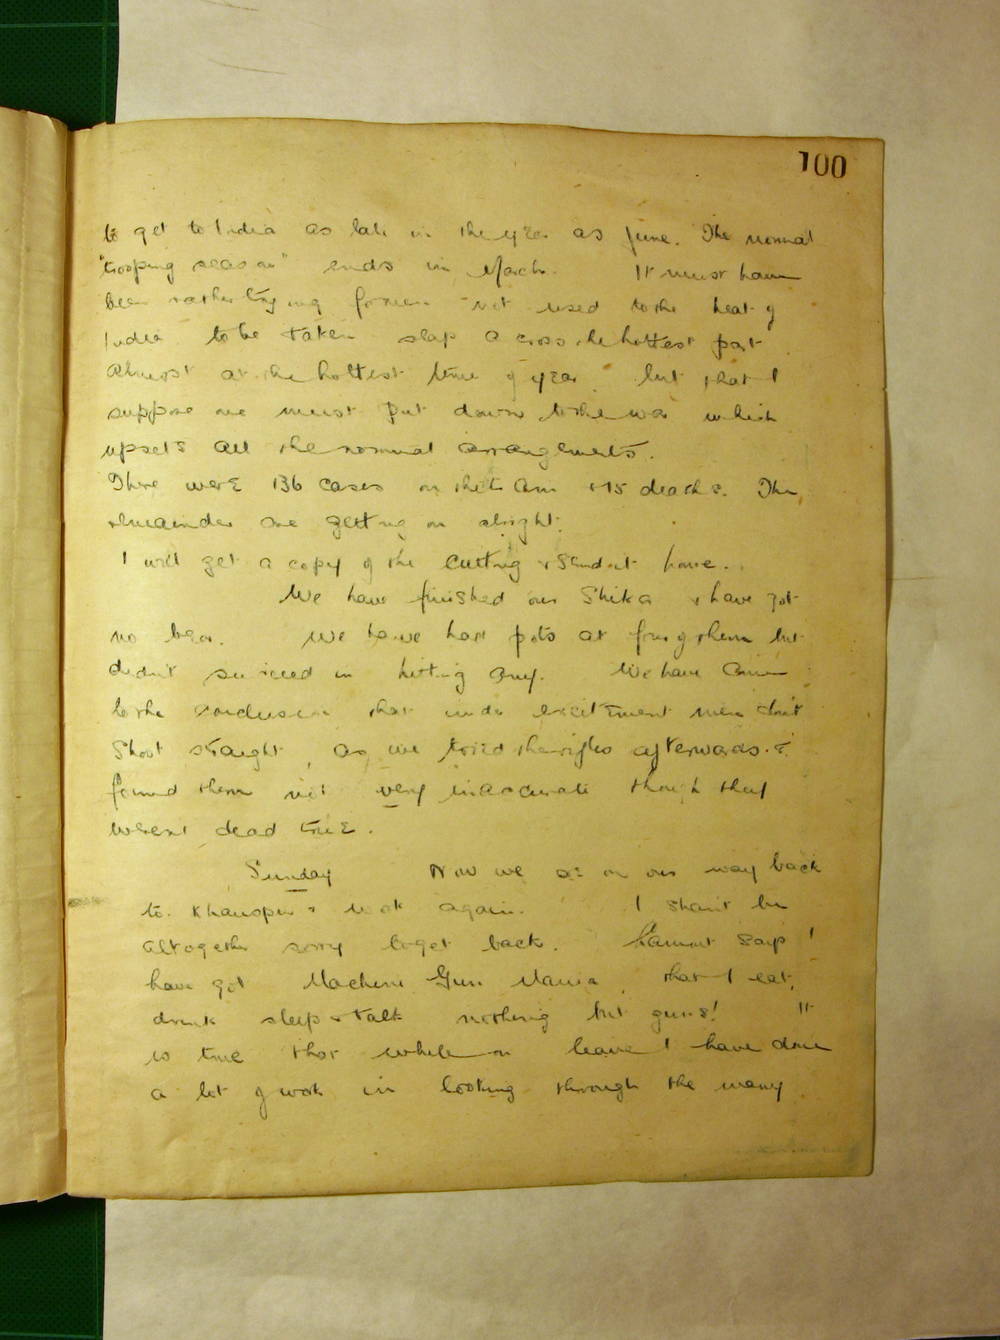 100
to get to India as late in the year as June. The normal
"trooping season" ends in March. It must have
been rather trying for men not used to the heat of
India to be taken slap across the hottest part
almost at the hottest time of year, but that I
suppose one must put down to the war which
upsets all the normal arrangements.
There were 136 cases on the train & 15 deaths. The
remainder are getting on alright.
I will get a copy of the cutting & send it home.
We have finished our Shikar & have got
no bear. We have had pots at four of them but
didn't succeed in hitting any. We have come
to the conclusion that under excitement men don't
shoot straight, as we tried the rifles afterwards &
found them not very inaccurate though they
weren't dead true.
Sunday Now we are on our way back
to Khanspur & work again. I shan't be
altogether sorry to get back. says I
have got Machine Gun Mania, that I eat,
drink sleep & talk nothing but guns! It
is true that while on leave I have done
a lot of work in looking through the many